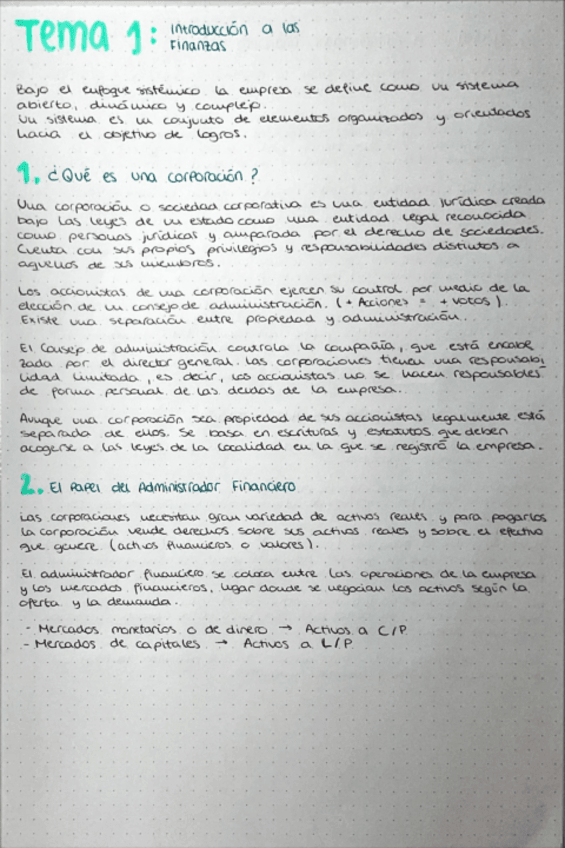 Tema 1: Introducción a las
Finanzas
Bajo el enfoque sistémico la empresa se define como un sistema
abierto, dinámico y complejo.
Un sistema es un conjunto de elementos organizados y orientados
hacia el objetivo de logros.
1. ¿Qué es una corporación?
Una corporación o sociedad corporativa es una entidad jurídica creada
bajo las leyes de un estado como una entidad legal reconocida
como personas jurídicas y amparada por el derecho de sociedades.
Cuenta con sus propios privilegios y responsabilidades distintos a
aquellos de sus miembros.
Los accionistas de una corporación ejercen su control por medio de la
elección de un consejo de administración. (+ Acciones = + votos).
Existe una separación entre propiedad y administración.
El Consejo de administración controla la compañía, que está encabe
zada por el director general. Las corporaciones tienen una responsabi
lidad limitada, es decir, los accionistas no se hacen responsables
de forma personal de las deudas de la empresa.
Aunque una corporación sea propiedad de sus accionistas legalmente está
separada de ellos. Se basa en escrituras y estatutos que deben
acogerse a las leyes de la localidad en la que se registró la empresa.
2. El Papel del Administrador Financiero
Las corporaciones necesitan gran variedad de activos reales y para pagarlos
la corporación vende derechos sobre sus activos reales y sobre el efectivo
que genere (activos financieros o valores).
El administrador financiero se coloca entre las operaciones de la empresa
y los mercados financieros, lugar donde se negocian los activos según la
oferta y la demanda.
- Mercados monetarios o de dinero → Activos a C/P
- Mercados de capitales → Activos a L/P